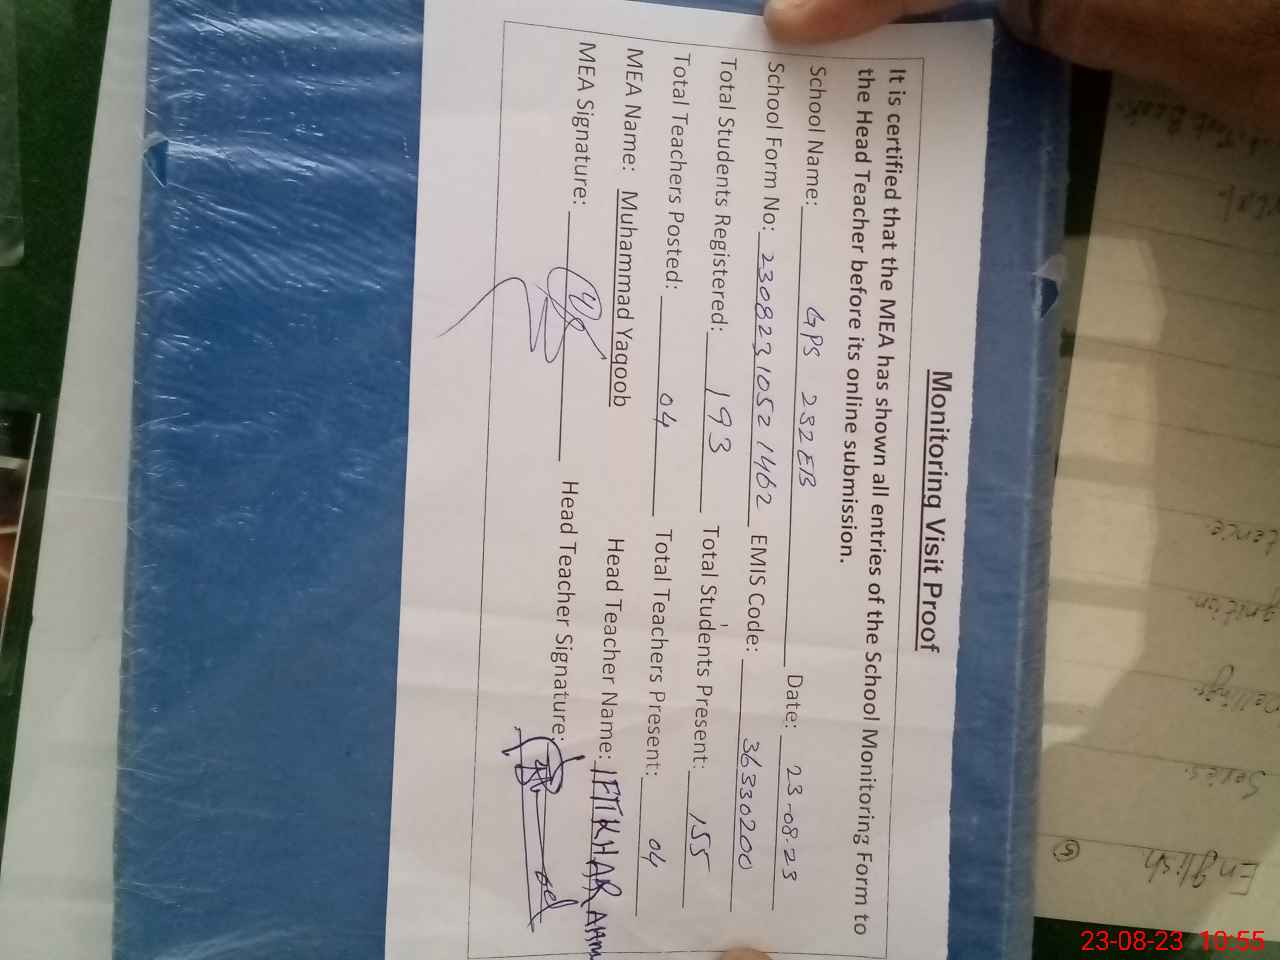 Monitoring Visit Proof
It is certified that the MEA has shown all entries of the School Monitoring Form to
the Head Teacher before its online submission.
School Name: GPS 232 EB Date: 23-08-23
School Form No: 230823 1052 1462 EMIS Code: 36330200
Total Students Registered: 193 Total Students Present: 155
Total Teachers Posted: 04 Total Teachers Present: 04
MEA Name: Muhammad Yaqoob Head Teacher Name: IFTIKHAR AHM
MEA Signature: Head Teacher Signature:
English 5
Series.
23-08-23 10:55